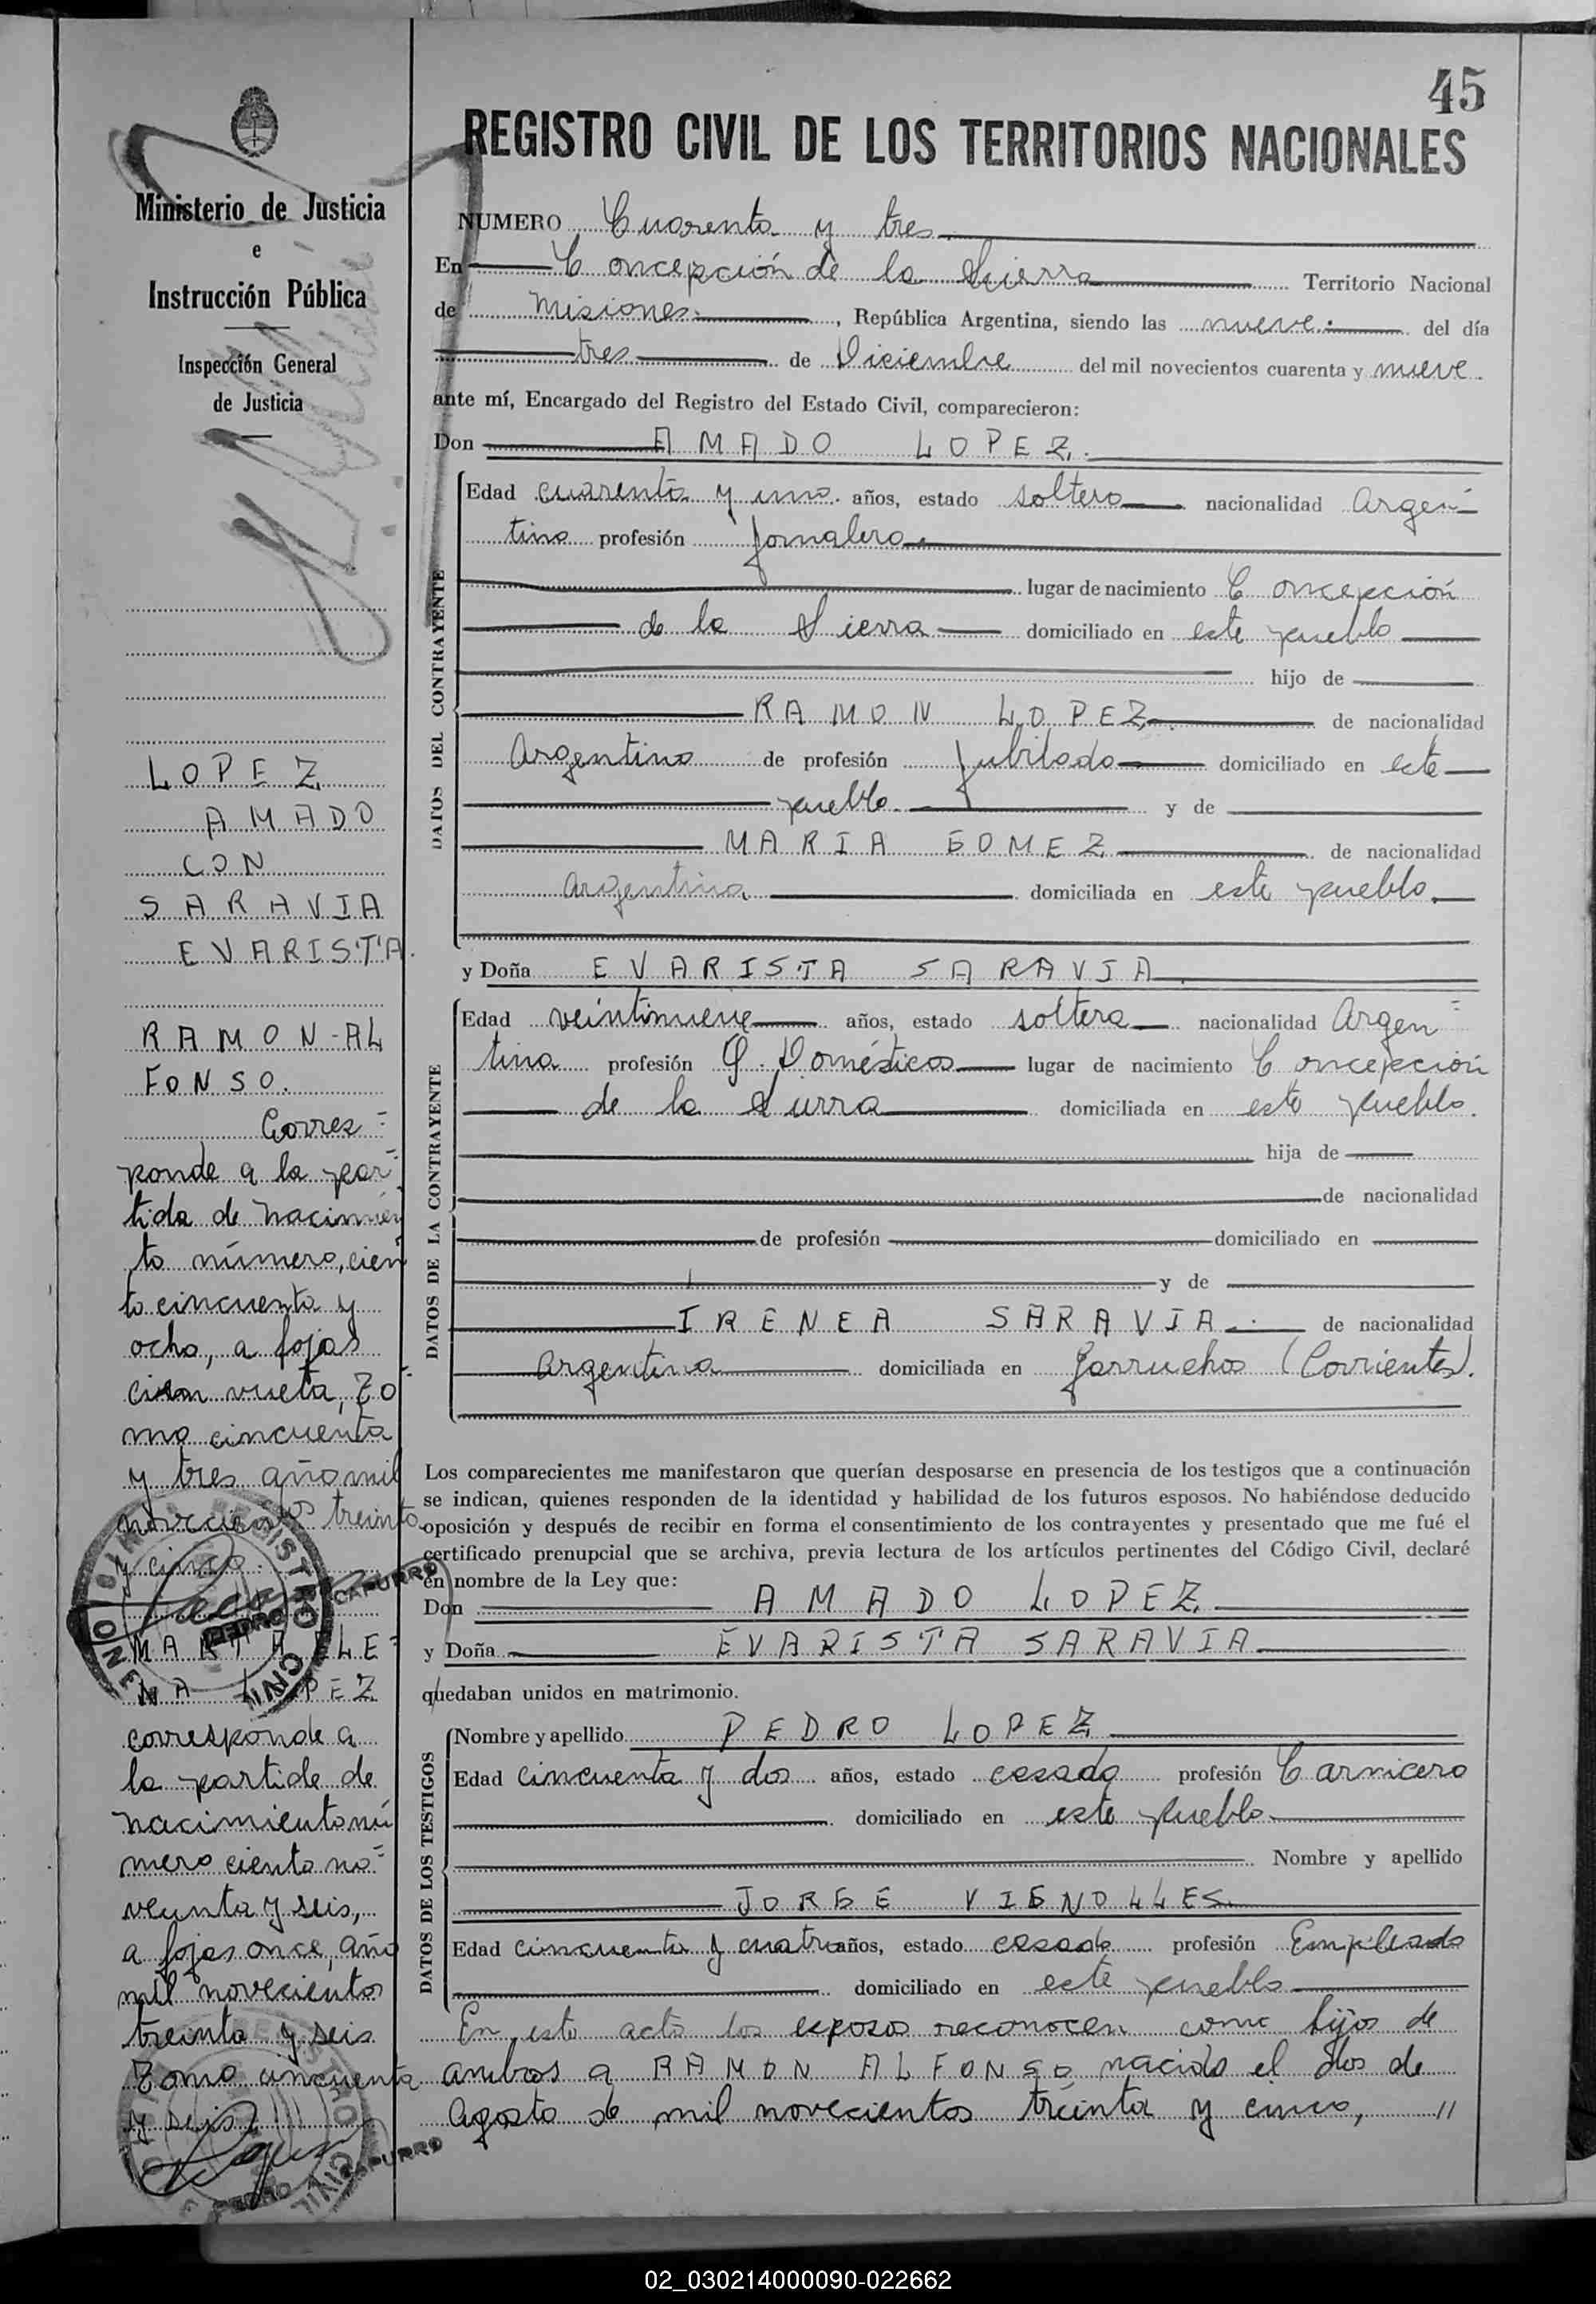 45
Ministerio de Justicia
e
Instrucción Pública
Inspección General
de Justicia
LOPEZ
AMADO
CON
SARAVIA
EVARISTA.
RAMON-AL
FONSO.
Corres=
ponde a la par=
tida de nacimien
to número, cien
to cincuenta y
ocho, a fojas
cien vuelta, To=
mo cincuenta
y tres año mil
novecientos treinta
y cinco.
PEDRO CAPURRO
MARIA ELE=
NA LOPEZ
corresponde a
la partida de
nacimiento nú
mero ciento no=
venta y seis,
a fojas once, año
mil novecientos
treinta y seis
Tomo cincuenta
y seis
PEDRO CAPURRO
REGISTRO CIVIL DE LOS TERRITORIOS NACIONALES
NUMERO Cuarenta y tres
En Concepción de la Sierra Territorio Nacional
de Misiones, República Argentina, siendo las nueve. del día
tres de Diciembre del mil novecientos cuarenta y nueve.
ante mí, Encargado del Registro del Estado Civil, comparecieron:
Don AMADO LOPEZ.
DATOS DEL CONTRAYENTE
Edad cuarenta y uno. años, estado soltero nacionalidad Argen=
tino profesión Jornalero.
lugar de nacimiento Concepción
de la Sierra domiciliado en este pueblo
hijo de
RAMON LOPEZ. de nacionalidad
Argentino de profesión Jubilado domiciliado en este
pueblo. y de
MARIA GOMEZ de nacionalidad
Argentina domiciliada en este pueblo.
y Doña EVARISTA SARAVIA.
DATOS DE LA CONTRAYENTE
Edad veintinueve años, estado soltera nacionalidad Argen=
tina profesión Q. Domésticos lugar de nacimiento Concepción
de la Sierra domiciliada en este pueblo.
hija de
de nacionalidad
de profesión domiciliado en
y de
IRENEA SARAVIA. de nacionalidad
Argentina domiciliada en Garruchos (Corrientes).
Los comparecientes me manifestaron que querían desposarse en presencia de los testigos que a continuación
se indican, quienes responden de la identidad y habilidad de los futuros esposos. No habiéndose deducido
oposición y después de recibir en forma el consentimiento de los contrayentes y presentado que me fué el
certificado prenupcial que se archiva, previa lectura de los artículos pertinentes del Código Civil, declaré
en nombre de la Ley que:
Don AMADO LOPEZ
y Doña EVARISTA SARAVIA
quedaban unidos en matrimonio.
DATOS DE LOS TESTIGOS
Nombre y apellido PEDRO LOPEZ
Edad cincuenta y dos años, estado casado profesión Carnicero
domiciliado en este pueblo.
Nombre y apellido
JORGE VIGNOLLES.
Edad cincuenta y cuatro años, estado casado profesión Empleado
domiciliado en este pueblo
En este acto los esposos reconocen como hijos de
ambos a RAMON ALFONSO nacido el dos de
Agosto de mil novecientos treinta y cinco, //
02_030214000090-022662